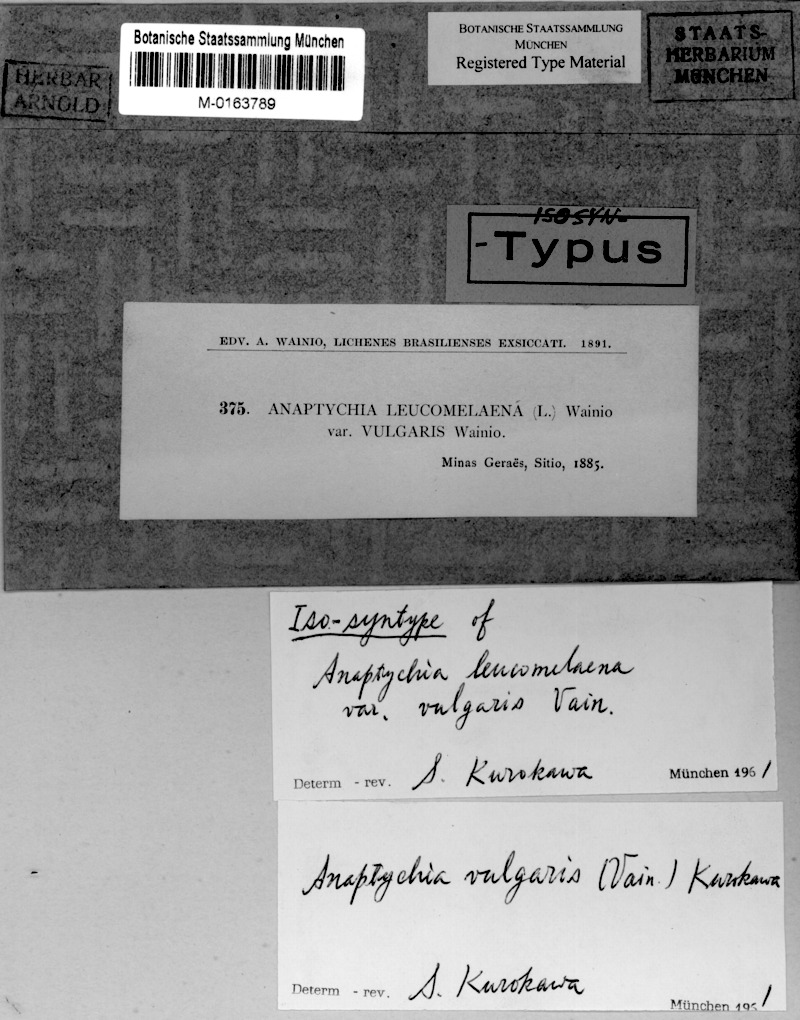 Botanische Staatssammlung München
M-0163789
BOTANISCHE STAATSSAMMLUNG
MÜNCHEN
Registered Type Material
STAATS-
HERBARIUM
MÜNCHEN
HERBAR
ARNOLD
ISOSYN-
-Typus
EDV. A. WAINIO, LICHENES BRASILIENSES EXSICCATI. 1891.
375. ANAPTYCHIA LEUCOMELAENA (L.) Wainio
var. VULGARIS Wainio.
Minas Geraës, Sitio, 1885.
Iso-syntype of
Anaptychia leucomelaena
var. vulgaris Vain.
Determ - rev. S. Kurokawa München 1961
Anaptychia vulgaris (Vain.) Kurokawa
Determ - rev. S. Kurokawa München 1961